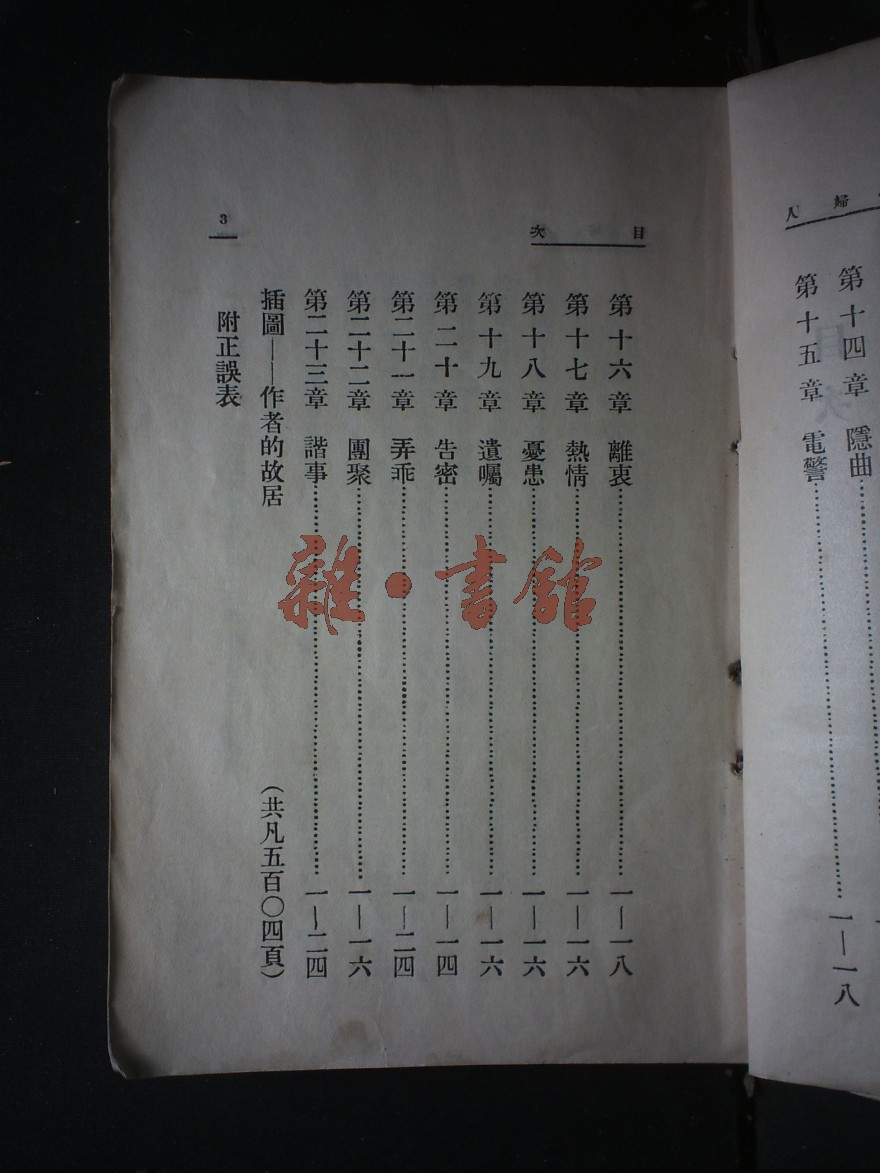 婦人
第十四章 隱曲
第十五章 電警……一—一八
目次
第十六章 離衷……一—一八
第十七章 熱情……一—一六
第十八章 憂患……一—一六
第十九章 遺囑……一—一六
第二十章 告密……一—一四
第二十一章 弄乖……一—二四
第二十二章 團聚……一—一六
第二十三章 諧事……一—二四
插圖——作者的故居 (共凡五百〇四頁)
附正誤表
3
雜·書館